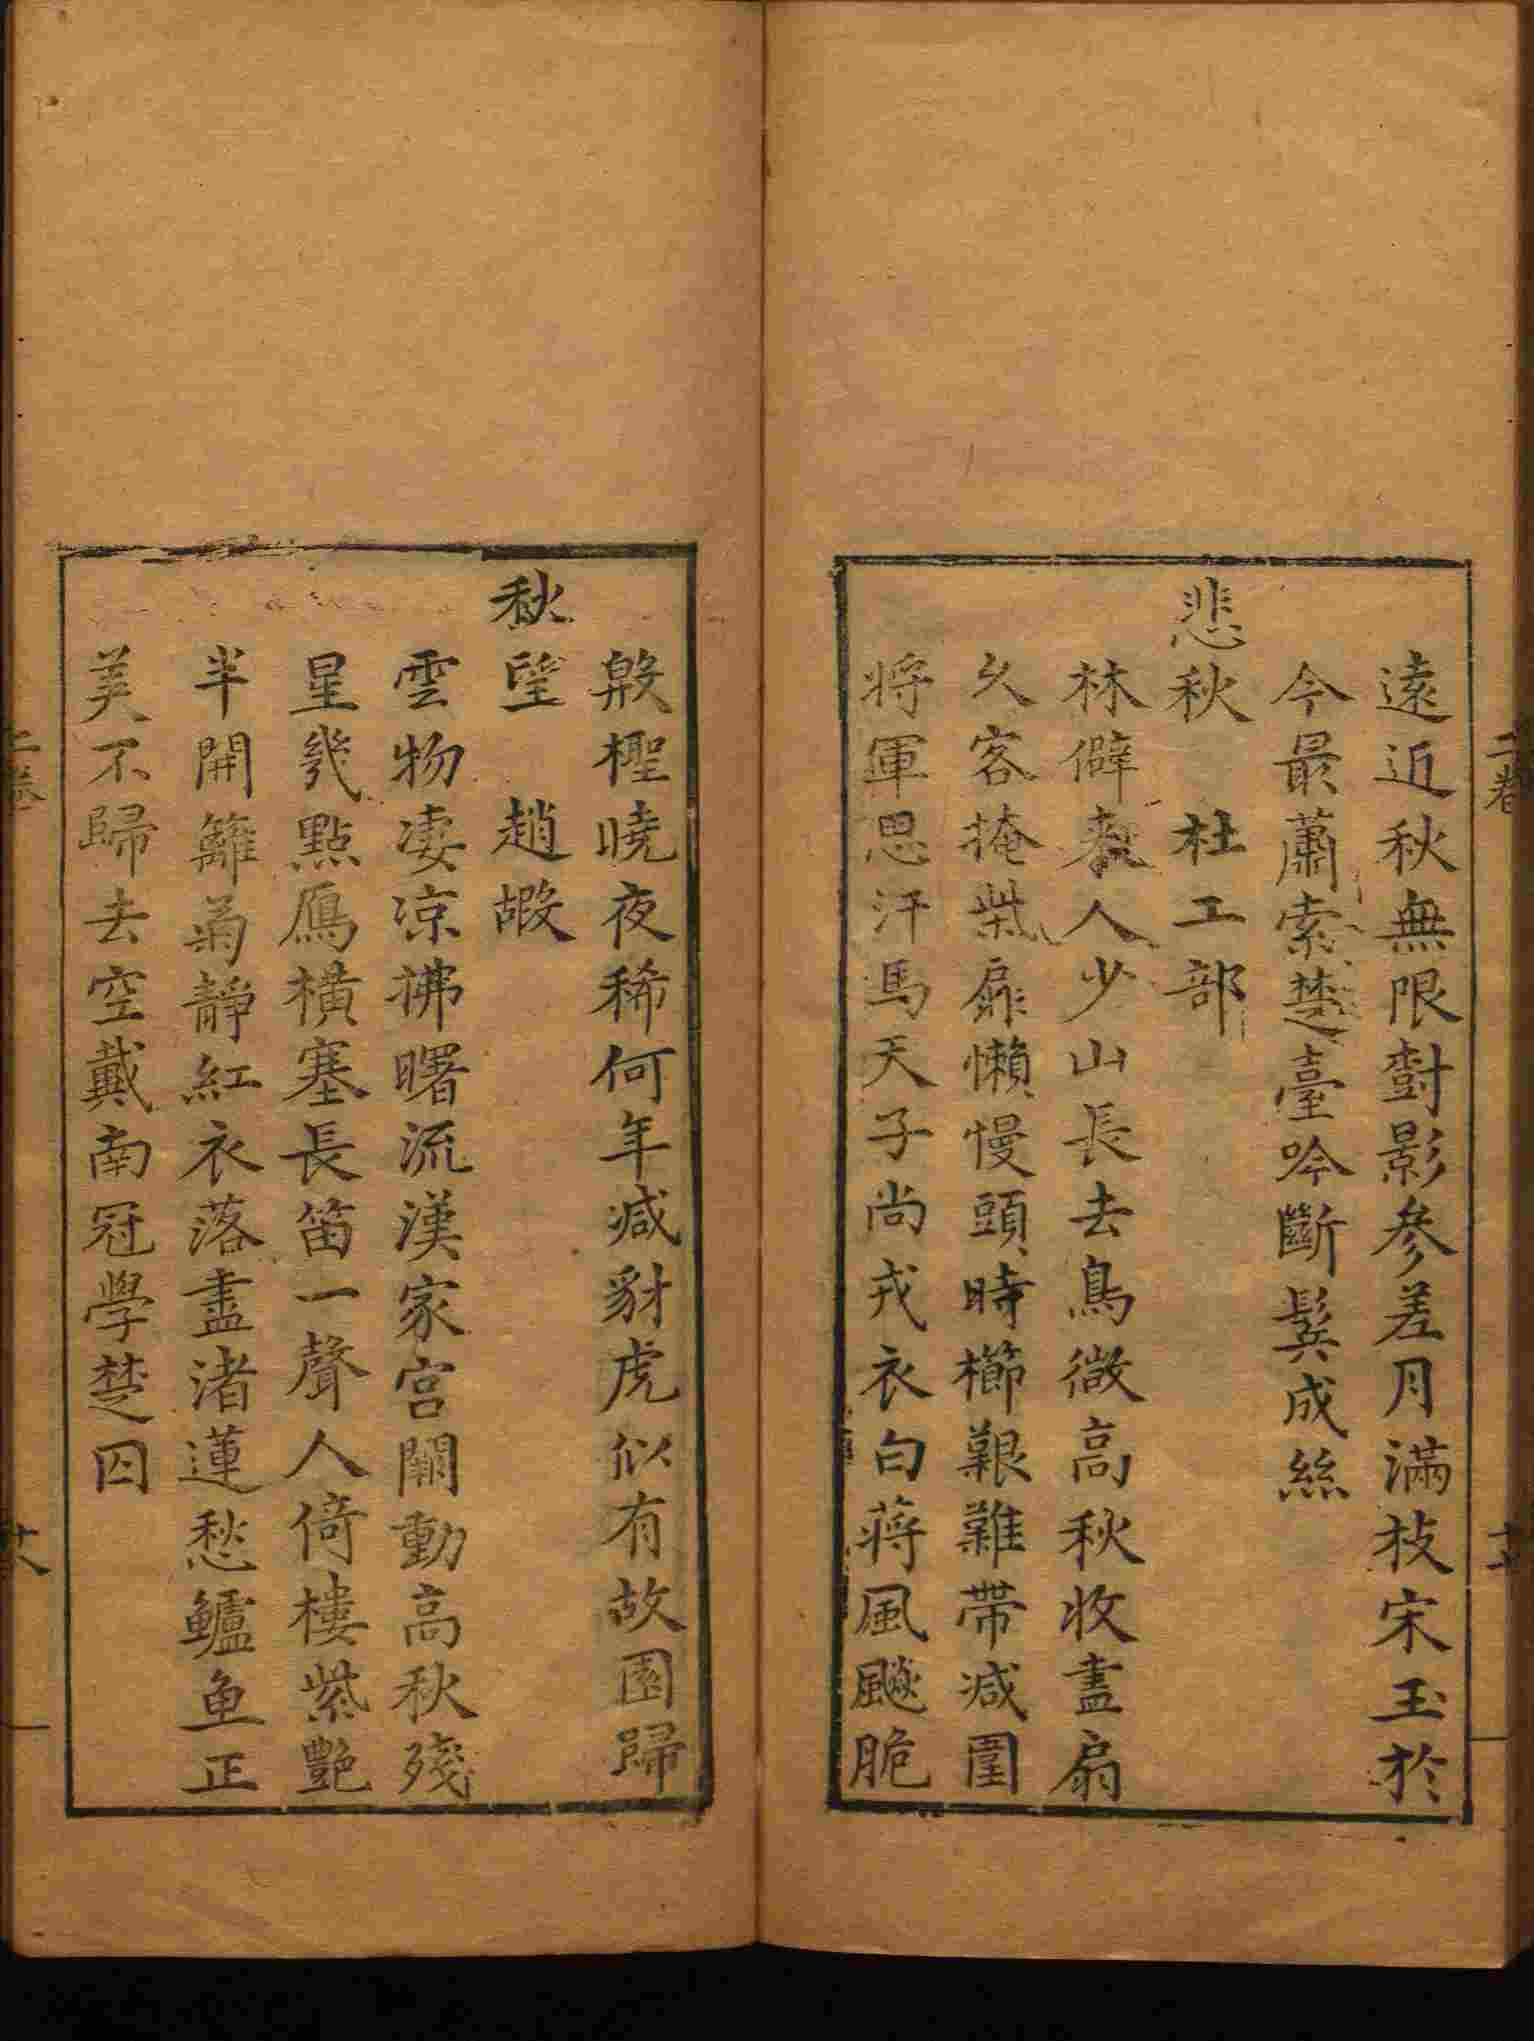 遠近秋無限對影參差月滿枝宋玉於
今最蕭索楚臺吟斷鬂成絲
悲秋 杜工部
林僻來人少山長去鳥微高秋收畫扇
久客掩柴扉懶慢頭時櫛艱難帶減圍
將軍思汗馬天子尚戎衣白蔣風飈脆
殷檉曉夜稀何年減豺虎似有故園歸
秋望 趙嘏
雲物凄凉拂曙流漢家宮闕動高秋殘
星幾點鴈橫塞長笛一聲人倚樓紫艷
半開籬菊靜紅衣落盡渚蓮愁鱸魚正
美不歸去空戴南冠學楚囚
二卷
十八
二卷